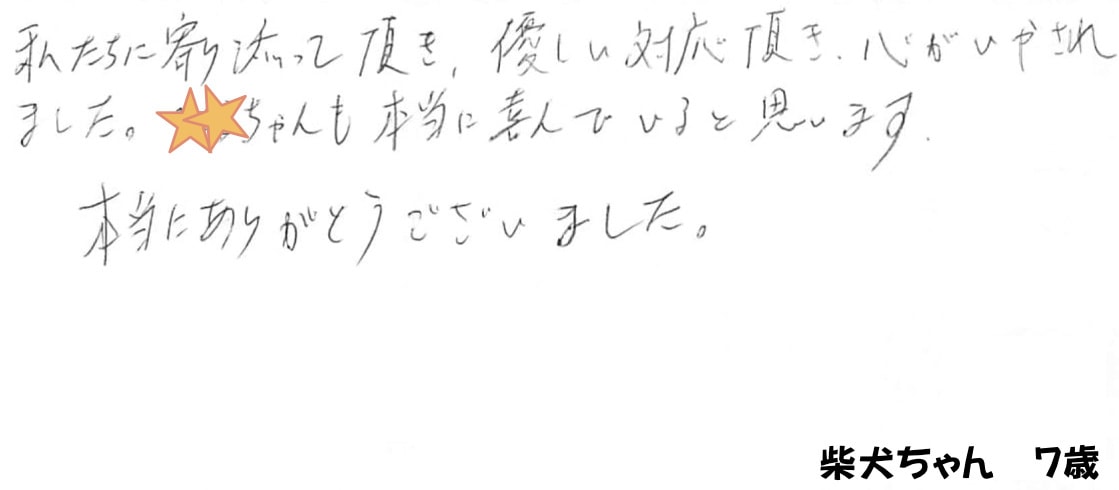 私たちに寄り添って頂き、優しい対応頂き、心がいやされ
ました。ちゃんも本当に喜んでいると思います。
本当にありがとうございました。
柴犬ちゃん　7歳